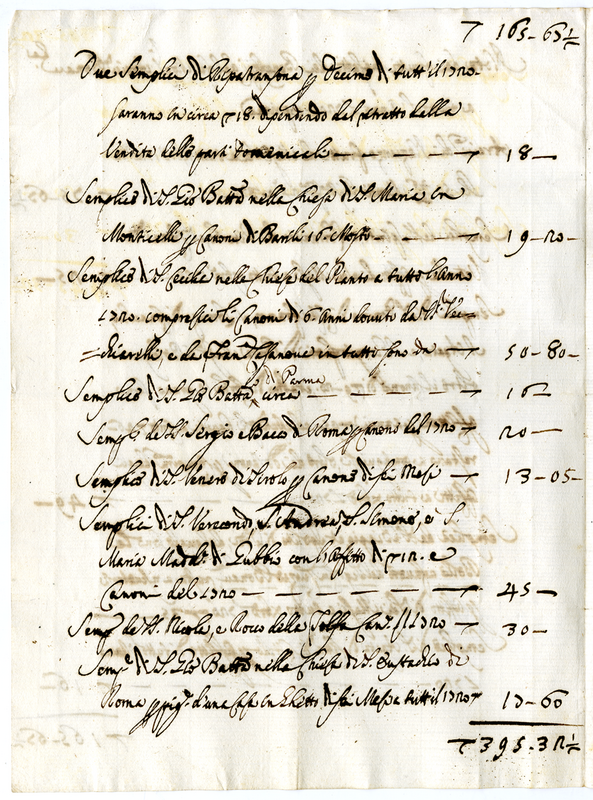 165-65½
Due Semplici di Ripatransona p Decime di tutt'il 1720.
saranno in circa 18. dipendendo dal ritratto della
Vendita delle parti Domenicali 18 —
Semplice di S. Gio Batta nella Chiesa di S. Maria in
Monticelli p Canone di Barili 16. Mosto 19-20-
Semplice di S. Cecilia nella Chiesa del Pianto a tutto l'anno
1720. compresici li Canoni di 6 Anni dovuti da
chiarelli, e da Fran. Casanova in tutto sono 50-80-
Semplice di S. Gio Batta di Parma circa 16
Sempl. de SS. Sergio e Bacco di Roma p Canone del 1720 20 —
Semplice di S. Venere di Sirolo p Canone di sei Mesi 13-05-
Semplici di S. Verecondo, S. Andrea, S. Simone, e S.
Maria Madal. di Gubbio con l'Affitto di 12. e
Canoni del 1720 45 —
Semp. de SS. Nicola, e Rocco della Tolfa Can. 1720 30 —
Semp. di S. Gio Batta nella Chiesa di S. Eustachio di
Roma p pig. d'una Casa in Ghetto di sei Mesi a tutt'il 1720 17-60
395.32½